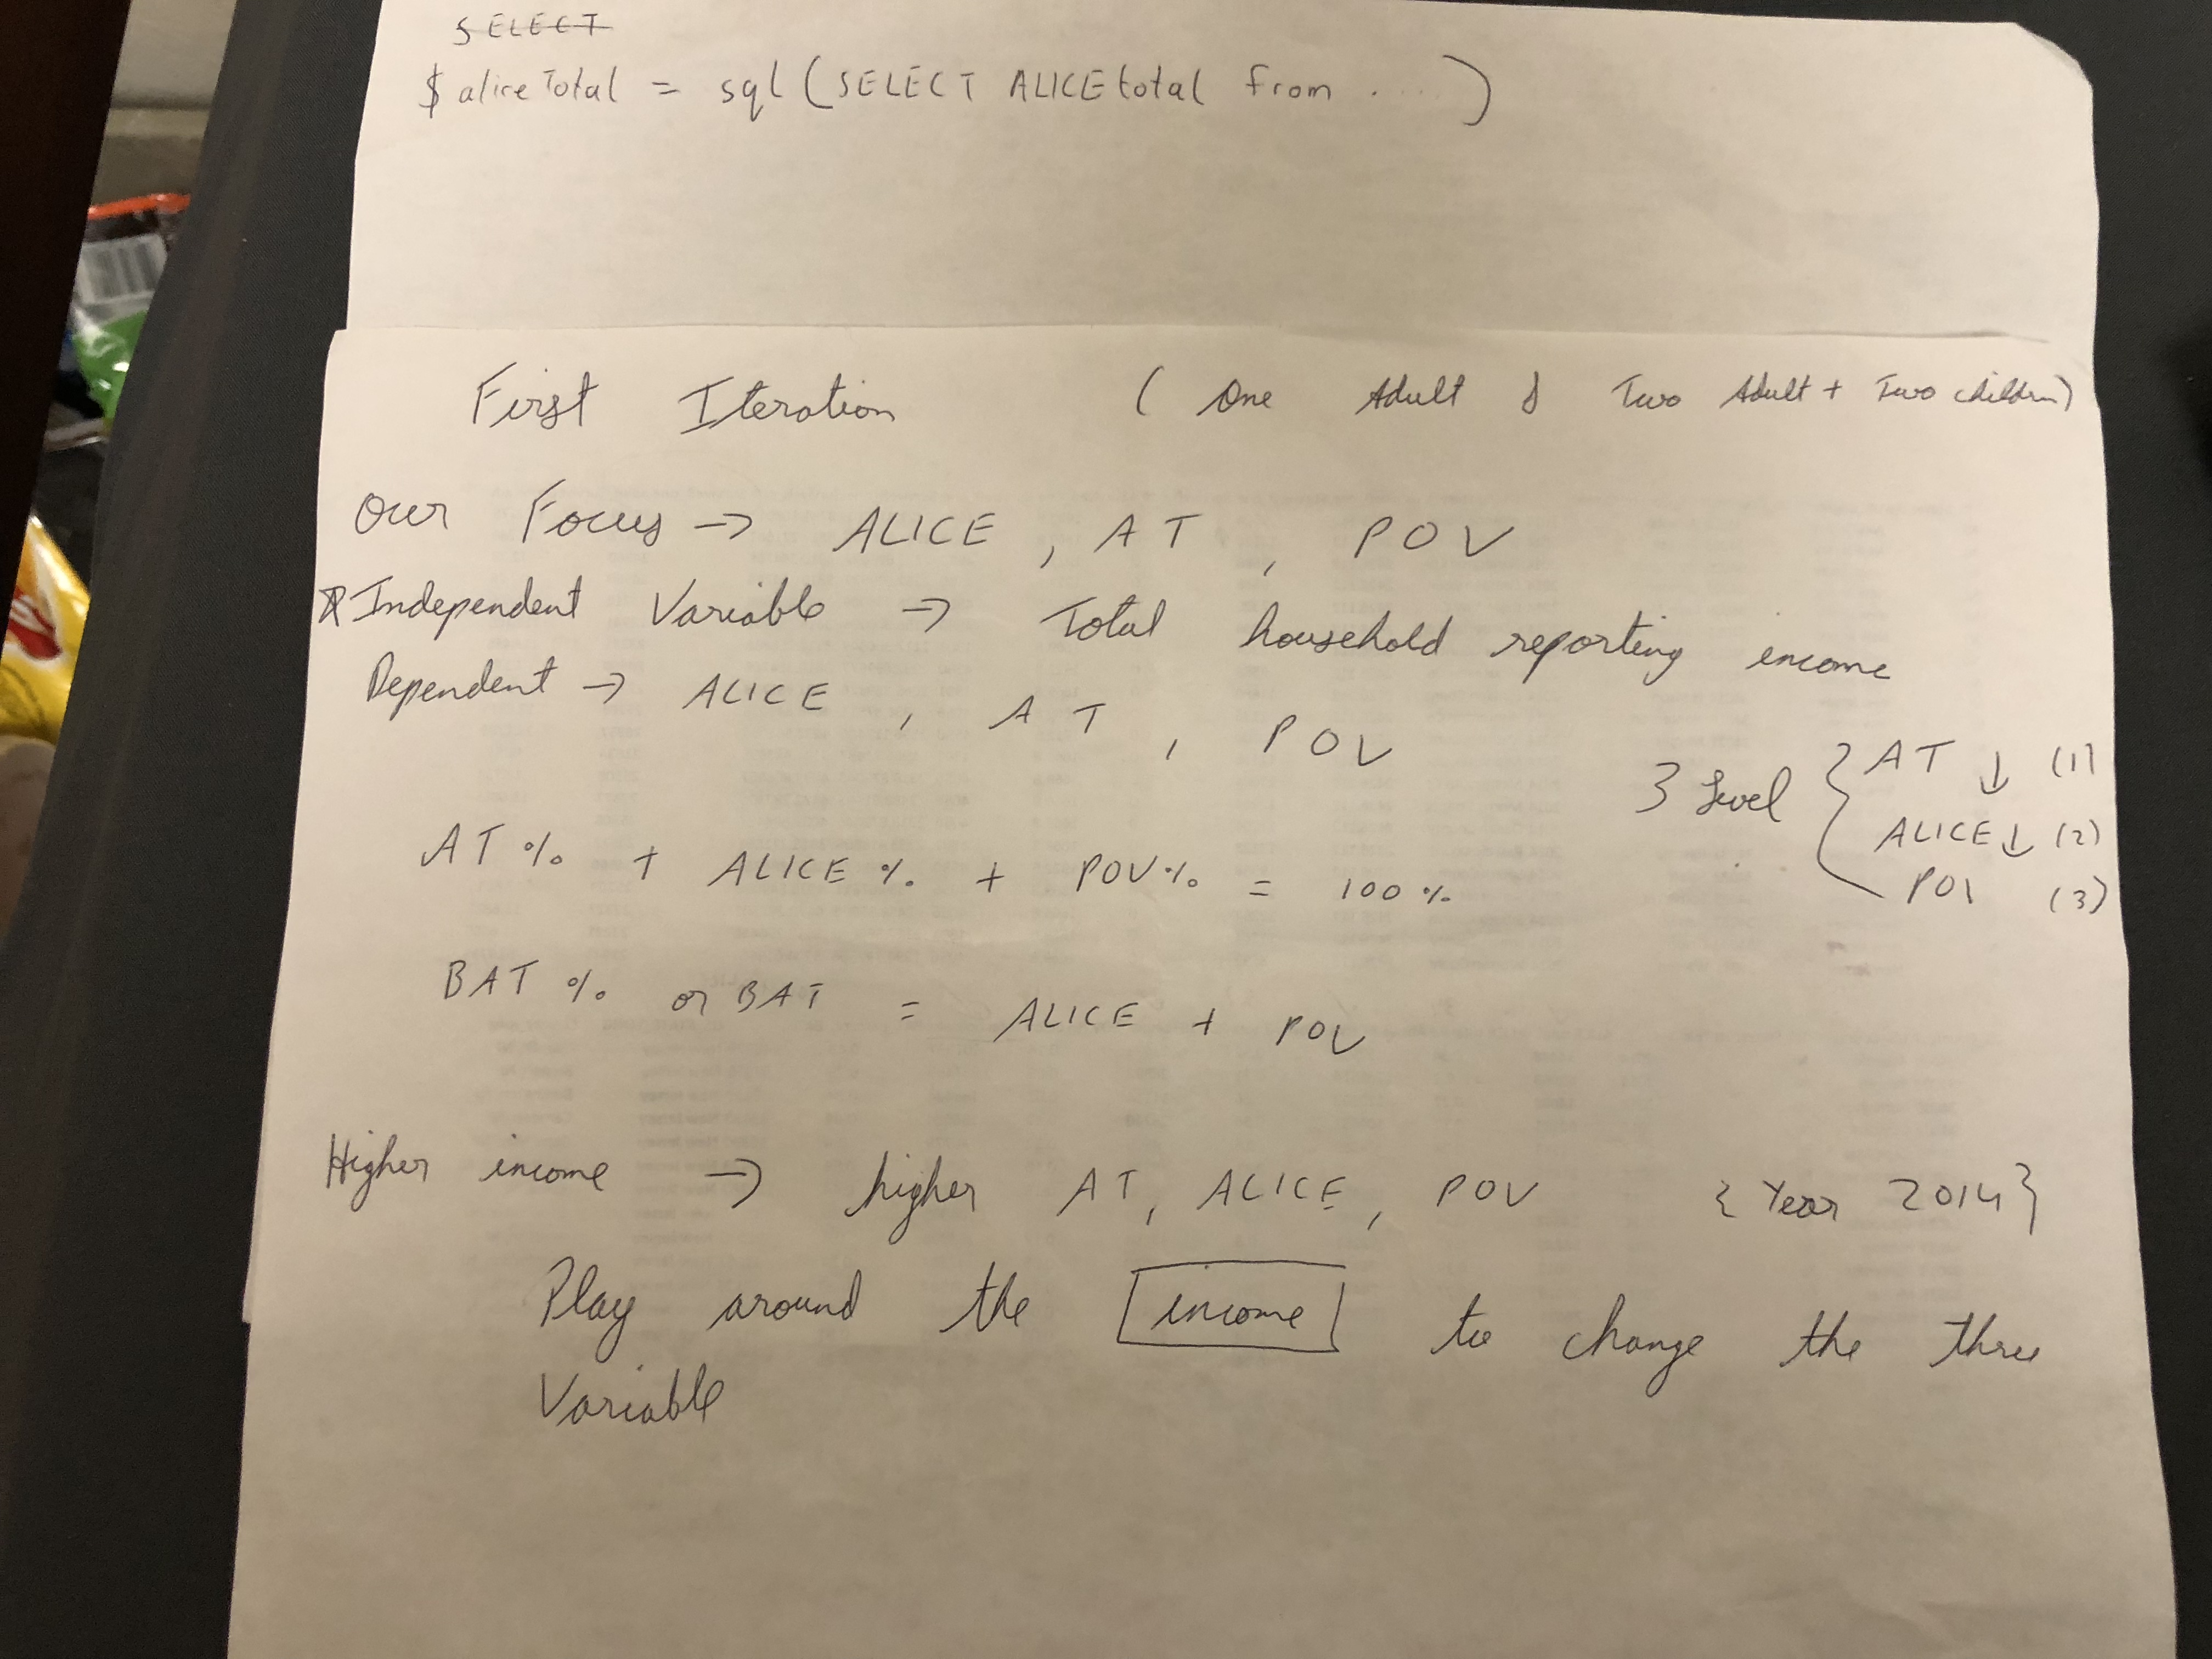 SELECT
$aliceTotal = sql (SELECT ALICEtotal from ....)
First Iteration ( One Adult & Two Adult + Two children)
Our Focus → ALICE, AT, POV
* Independent Variable → Total household reporting income
Dependent → ALICE, AT, POV
3 Level { AT ↓ (1)
ALICE ↓ (2)
POV (3)
AT % + ALICE % + POV % = 100 %
BAT % or BAT = ALICE + POV
Higher income → higher AT, ALICE, POV { Year 2014 }
Play around the income to change the three
Variable